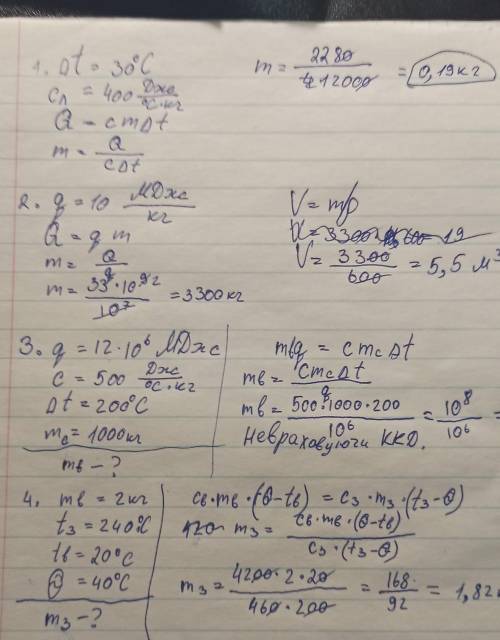 1. Δt = 30°C
c_Л = 400 Дж/°C·кг
Q = cmΔt
m = Q/cΔt
m = 2280/12000 = 0,19 кг
2. q = 10 МДж/кг
Q = q m
m = Q/q
m = 33·10⁹/10⁷ = 3300 кг
V = m/ρ
V = 3300/600 = 5,5 м³
3. q = 12·10⁶ МДж
c = 500 Дж/°C·кг
Δt = 200°C
m_c = 1000 кг
m_в - ?
m_в q = c m_c Δt
m_в = c m_c Δt/q
m_в = 500·1000·200/10⁶ = 10⁸/10⁶ =
Невраховуючи ККД.
4. m_в = 2 кг
t_з = 240°C
t_в = 20°C
Θ = 40°C
m_з - ?
c_в·m_в·(Θ-t_в) = c_з·m_з·(t_з-Θ)
m_з = c_в·m_в·(Θ-t_в)/c_з·(t_з-Θ)
m_з = 4200·2·20/460·200 = 168/92 = 1,82